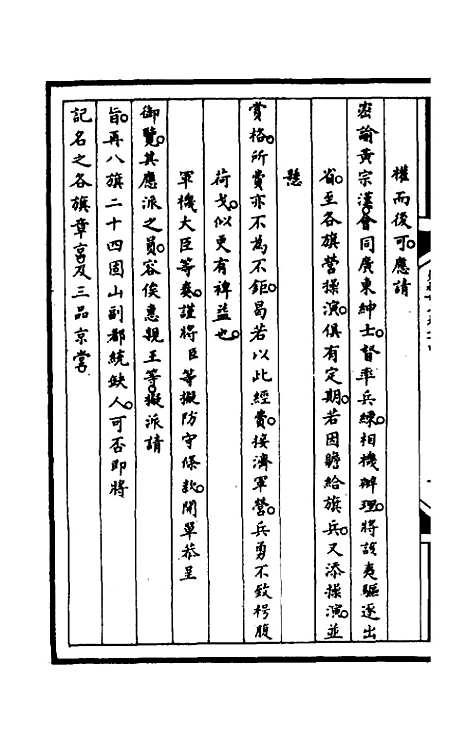 權而後可。應請
密諭黃宗漢。會同廣東紳士。督率兵練。相機辦理。將該夷驅逐出
省。至各旗營操演。俱有定期。若因贍給旗兵。又添操演。並
懸
賞格。所費亦不為不鉅。曷若以此經費。接濟軍營。兵勇不致枵腹
荷戈。似更有裨益也。
軍機大臣等奏。謹將臣等擬防守條款。開單恭呈
御覽。其應派之員。容俟惠親王等擬派請
旨。再八旗二十四固山副都統缺人。可否即將
記名之各旗章京及三品京堂